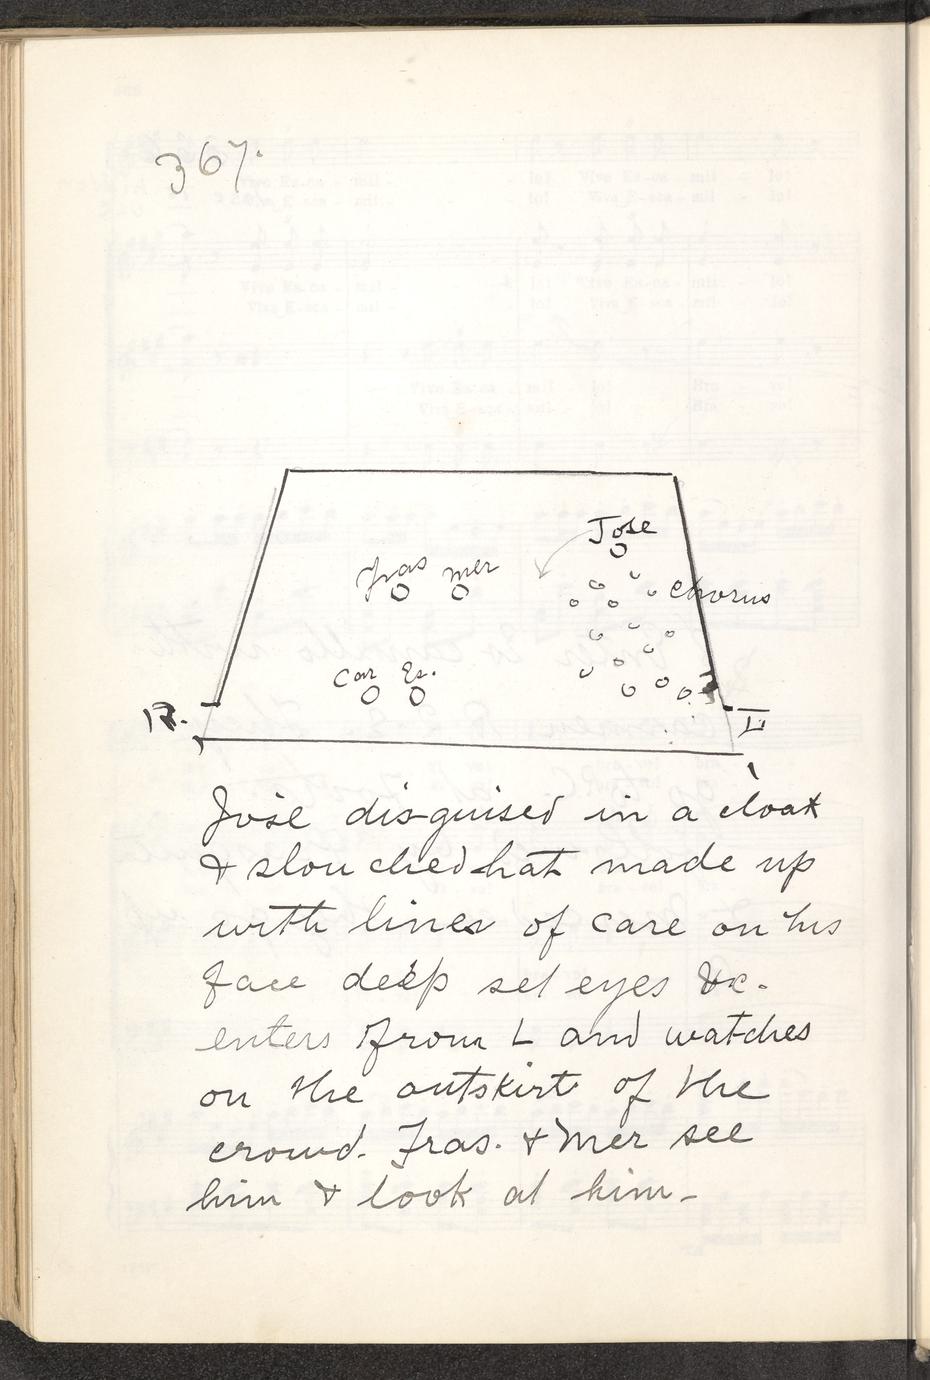 367.
Jose
Fras Mer
Chorus
Car Es.
R. L
José disguised in a cloak
& slouched hat made up
with lines of care on his
face deep set eyes &c.
enters from L and watches
on the outskirt of the
crowd. Fras. & Mer see
him & look at him -